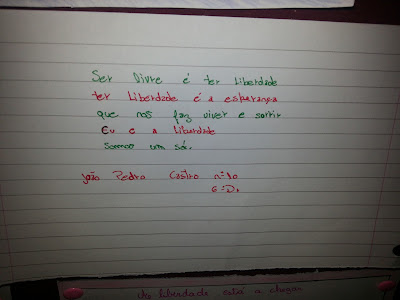 Ser livre é ter liberdade
ter liberdade é a esperança
que nos faz viver e sorrir
Eu e a liberdade
Somos um só.
João Pedro Castro nº10
6ºD
da liberdade está a chegar